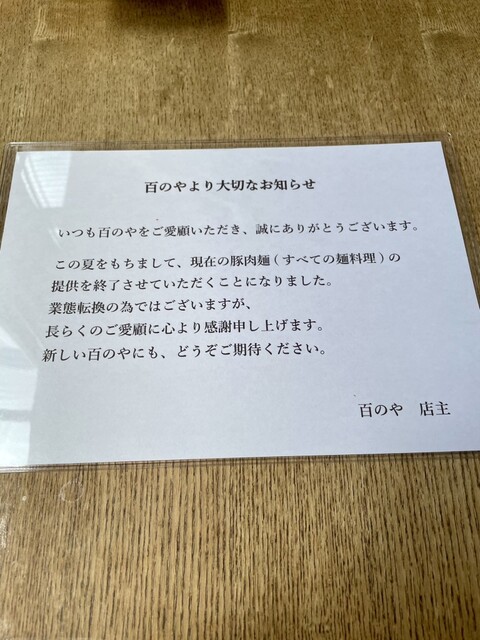 百のやより大切なお知らせ
いつも百のやをご愛顧いただき、誠にありがとうございます。
この夏をもちまして、現在の豚肉麺(すべての麺料理)の
提供を終了させていただくことになりました。
業態転換の為ではございますが、
長らくのご愛顧に心より感謝申し上げます。
新しい百のやにも、どうぞご期待ください。
百のや　店主